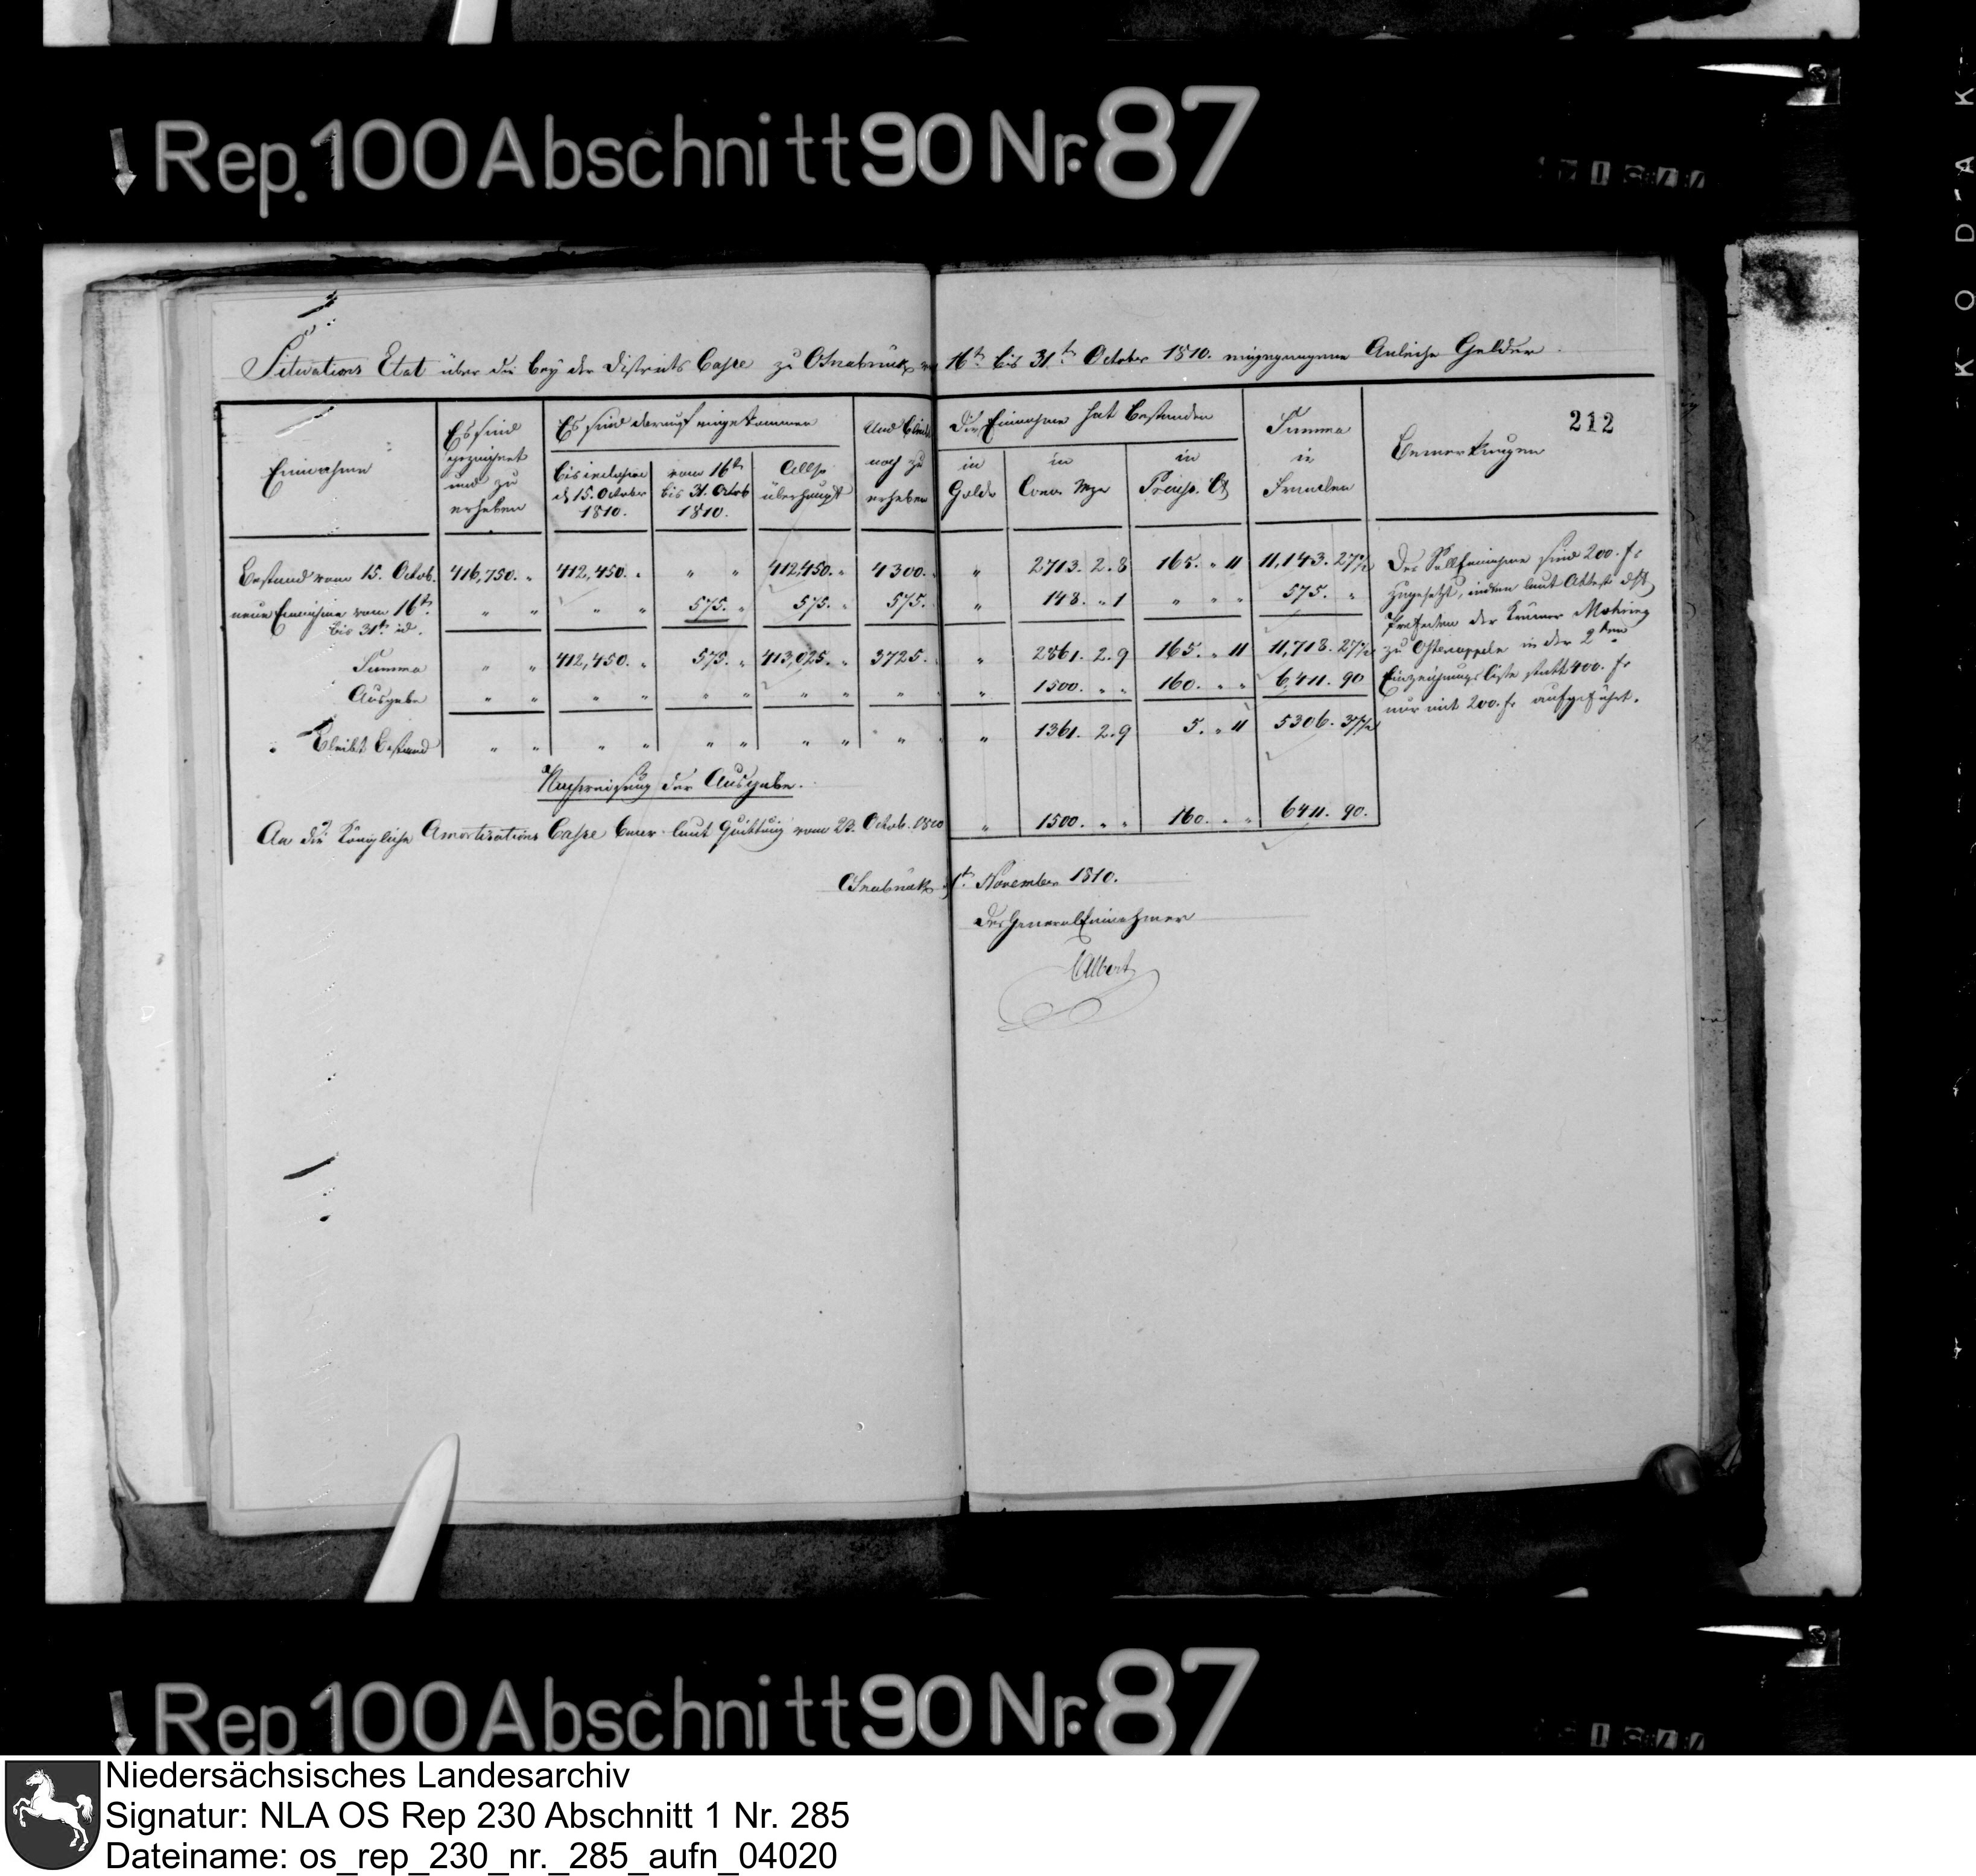 Rep. 100 Abschnitt 90 Nr. 87
KODAK
212
Situations Etat über die bey der Districts Casse zu Osnabrück vom 16ten bis 31ten October 1810. eingegangene Anleihe Gelder.
Einnahme
Es sind gezeichnet und zu erheben
Es sind darauf eingekommen
bis inclusive d. 15. October 1810.
vom 16ten bis 31. Octob 1810.
Allso überhaupt
Und bleibt noch zu erheben
Die Einnahme hat bestanden
in Golde
in Conv. Mze
in Preuss. Ct
Summa in Franken
Bemerkungen
Bestand vom 15. Octob. 416,750. " 412,450. " " " 412,450. " 4300. " " 2713. 2. 8 165. " 11 11,143. 27½
neue Einnahme vom 16ten bis 31ten id. " " " " 575. " 575. " 575. " " 148. " 1 " " " 575. "
Summa " " 412,450. " 575. " 413,025. " 3725. " " 2861. 2. 9 165. " 11 11,718. 27½
Ausgabe " " " " " " " " " " " 1500. " " 160. " " 6,411. 90
Bleibt Bestand " " " " " " " " " " 1361. 2. 9 5. " 11 5306. 37½
Der Solleinnahme sind 200. fr
zugesetzt, indem laut Attest
Praefecten der Krämer Möhring
zu Ostercappeln in der 2ten
Einzeichnungs Liste statt 400. fr
nur mit 200. fr aufgeführt.
Nachweisung der Ausgabe.
An die Königliche Amortisations Casse laut Quittung vom 23. Octob. 1810 " 1500. " " 160. " " 6411. 90.
Osnabrück 1t. November 1810.
Der General Einnehmer
Albert
Rep. 100 Abschnitt 90 Nr. 87
Niedersächsisches Landesarchiv
Signatur: NLA OS Rep 230 Abschnitt 1 Nr. 285
Dateiname: os_rep_230_nr._285_aufn_04020